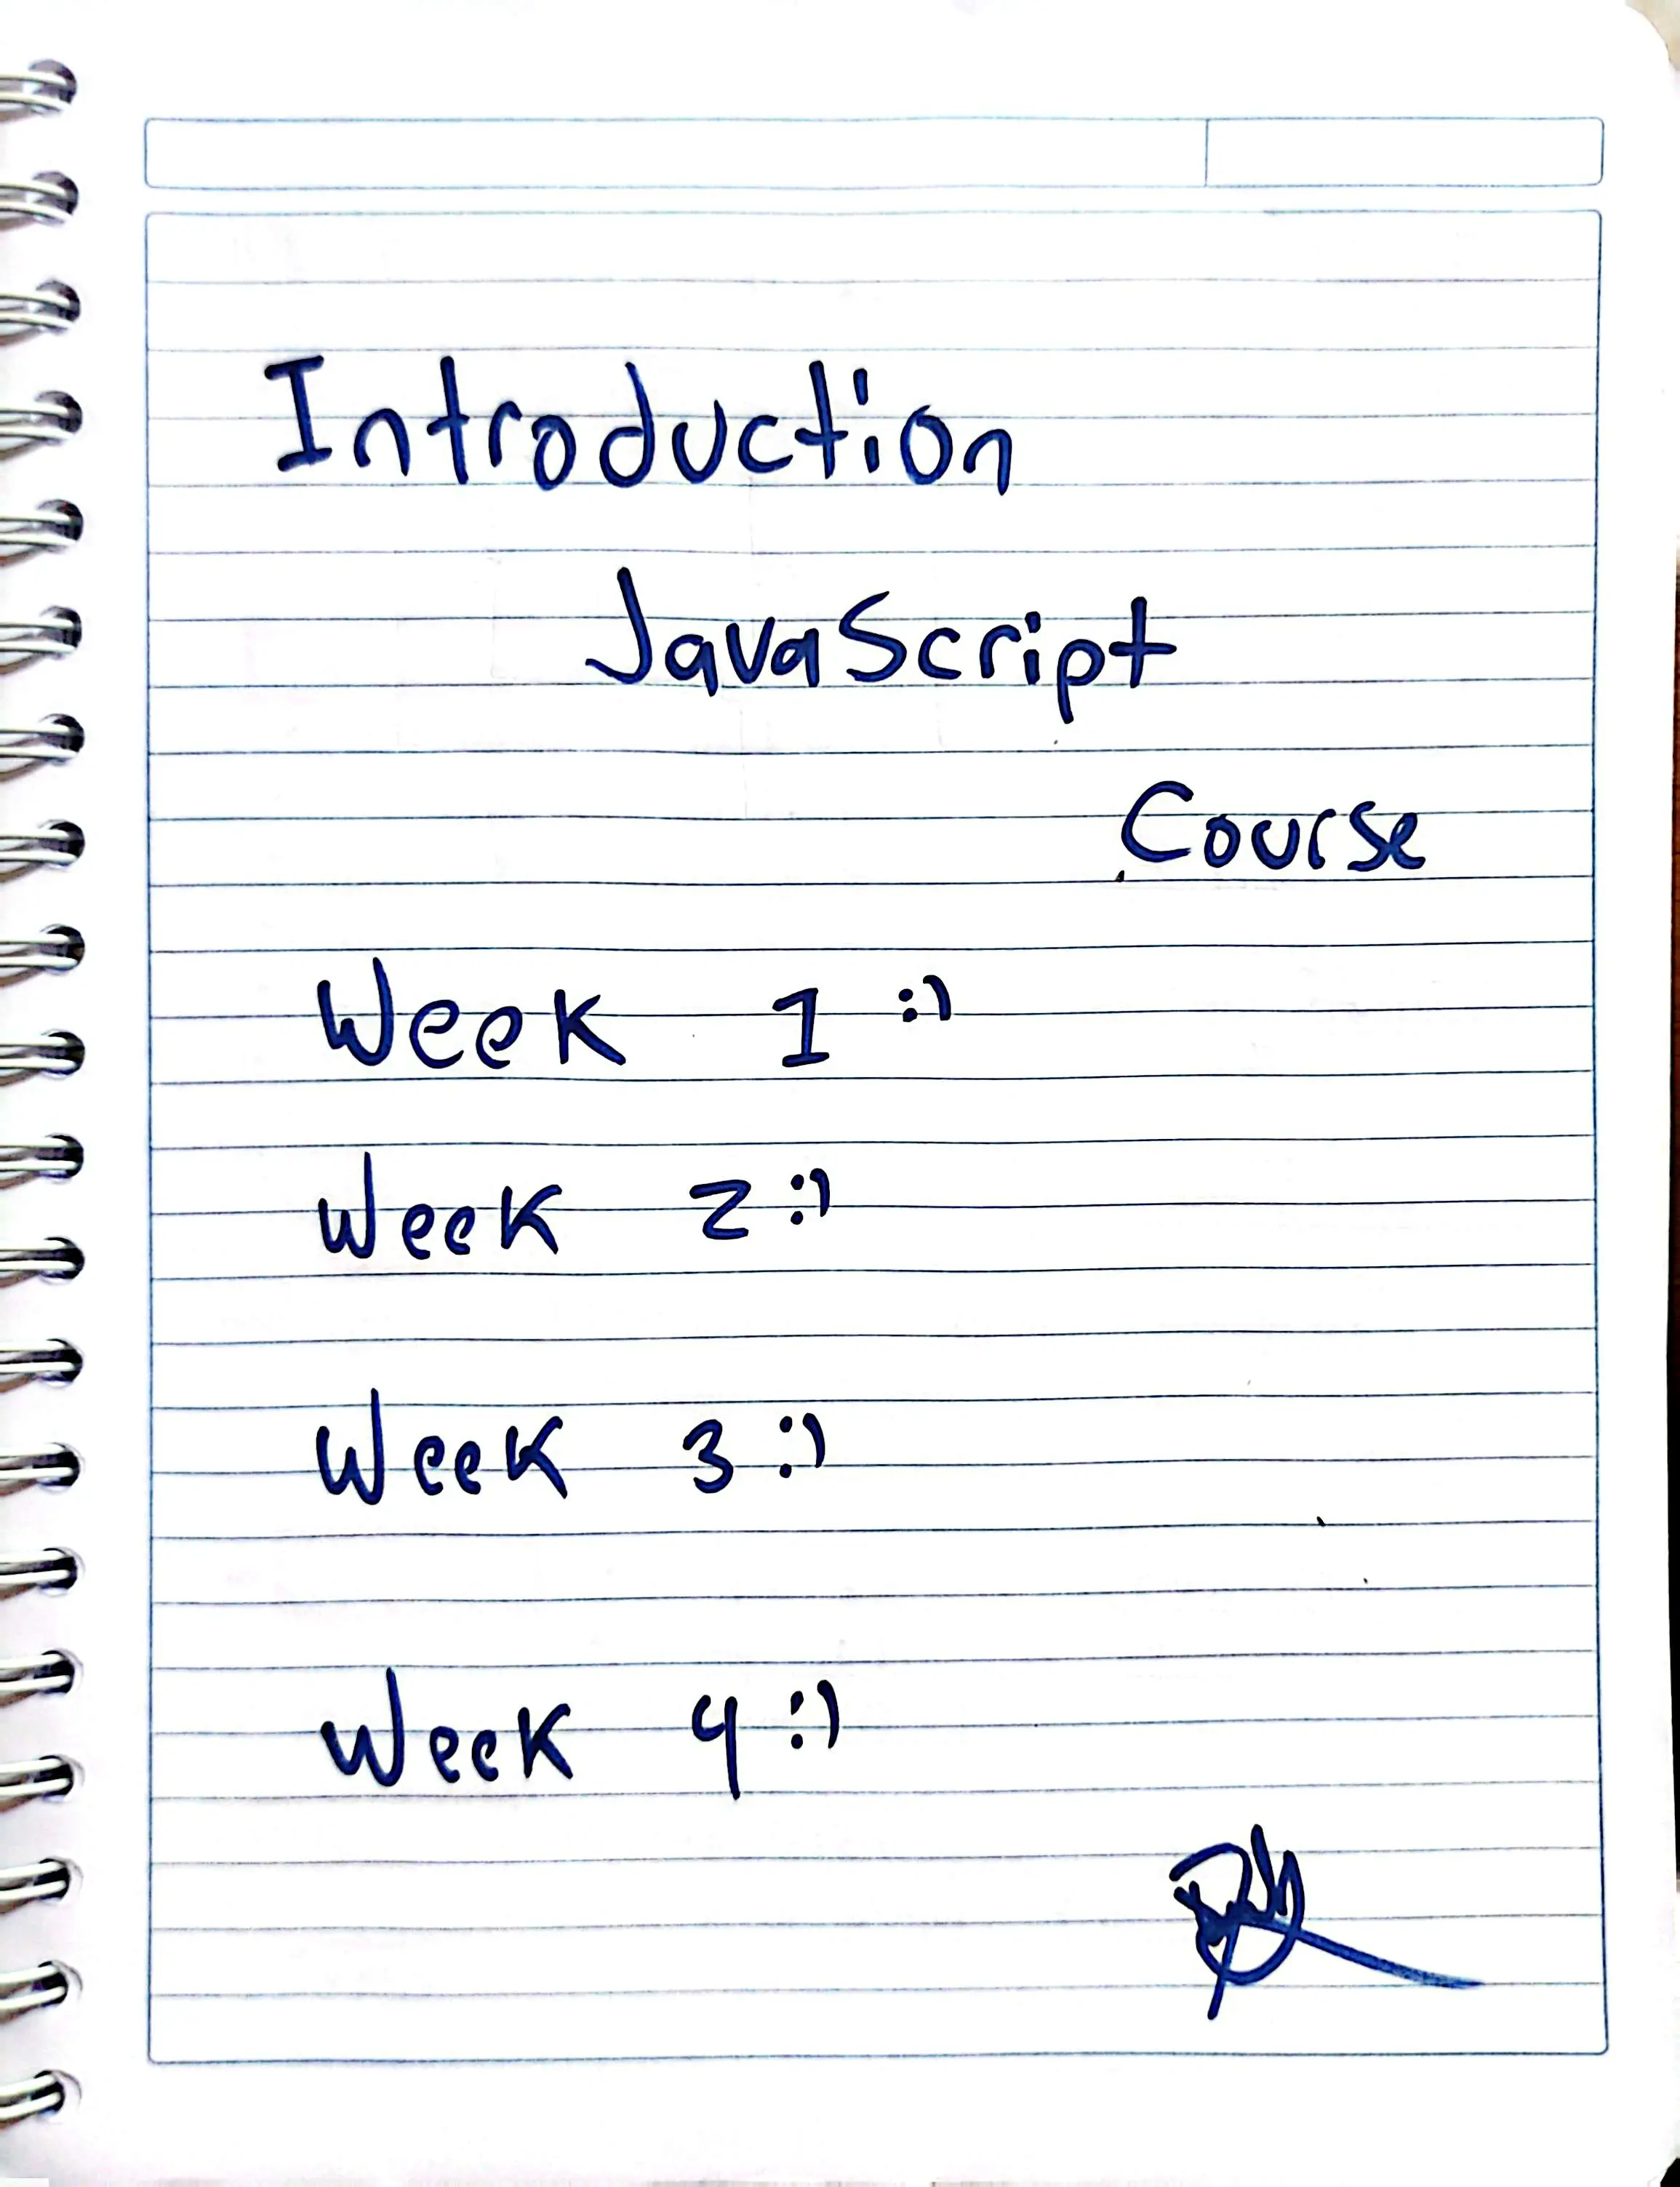 Introduction
JavaScript
Course
Week 1 :)
Week 2 :)
Week 3 :)
Week 4 :)